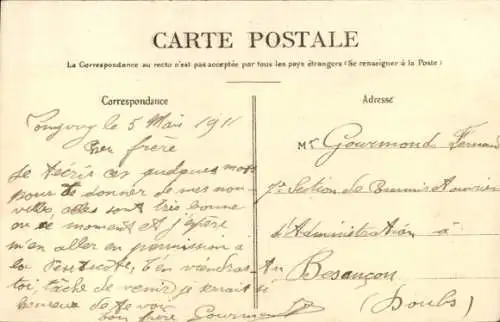 CARTE POSTALE
La Correspondance au recto n'est pas acceptée par tous les pays étrangers (Se renseigner à la Poste)
Correspondance
Adresse
Longwy le 5 Mars 1911
Cher frère
Je t'écris ces quelques mots
pour te donner de mes nou-
velles, elles sont très bonne
en ce moment et j'espère
m'en aller en permission à
la Pentecôte, t'en viendras
toi, tache de venir je serait si
heureux de te voir
ton frère Gourmond
Mr Gourmond Fernand
7e Section de Commis Ouvriers
d'Administration à
Besançon
(Doubs)